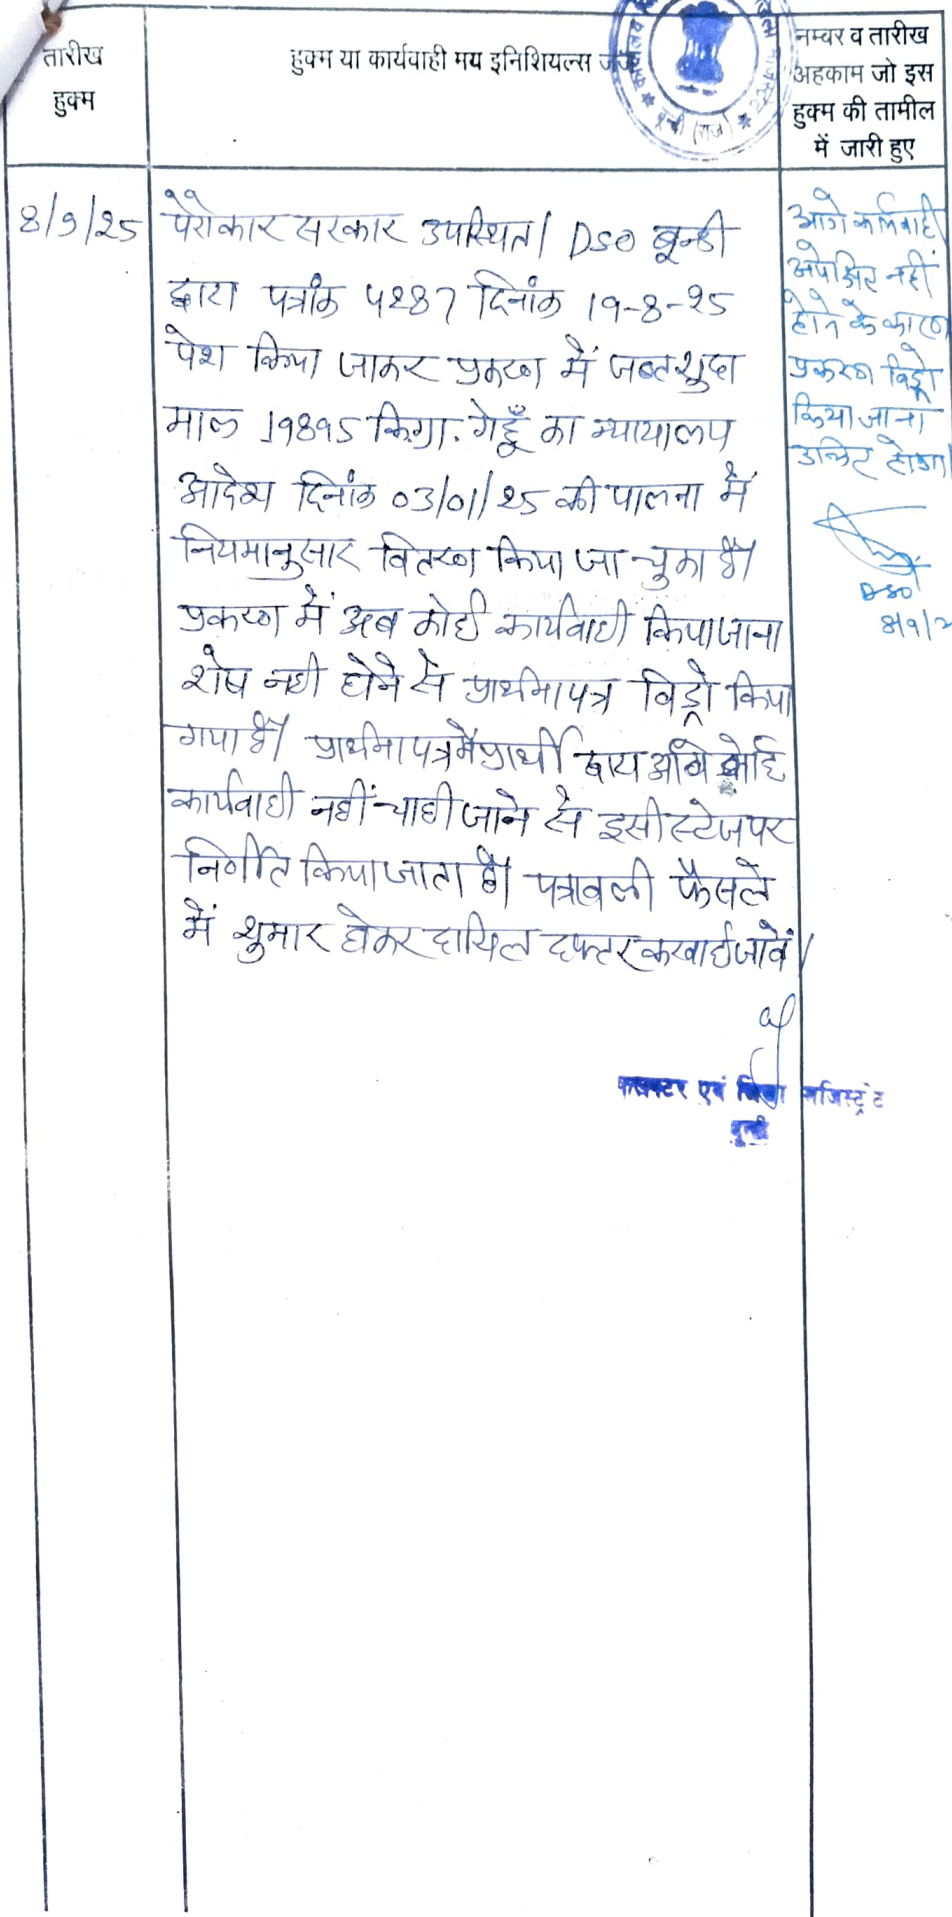 तारीख
हुक्म
हुक्म या कार्यवाही मय इनिशियल्स जज
नम्बर व तारीख
अहकाम जो इस
हुक्म की तामील
में जारी हुए
बून्दी (राज.)
8/9/25
पैरोकार सरकार उपस्थित। DSO बून्दी
द्वारा पत्रांक 5287 दिनांक 19-8-25
पेश किया जाकर प्रकरण में जब्तशुदा
माल 19895 कि.ग्रा. गेहूँ का न्यायालय
आदेश दिनांक 03/01/25 की पालना में
नियमानुसार वितरण किया जा चुका है।
प्रकरण में अब कोई कार्यवाही किया जाना
शेष नही होने से प्रार्थना पत्र विड्रो किया
गया है। प्रार्थना पत्र में प्रार्थी द्वारा आगे कोई
कार्यवाही नहीं चाही जाने से इसी स्टेज पर
निर्णीत किया जाता है। पत्रावली फैसले
में शुमार होकर दाखिल दफ्तर करवाई जावें।
आगे कार्यवाही
अपेक्षित नहीं
होने के कारण
प्रकरण विड्रो
किया जाना
उचित होगा
DSO
8/9/2
कलक्टर एवं जिला मजिस्ट्रेट
बून्दी